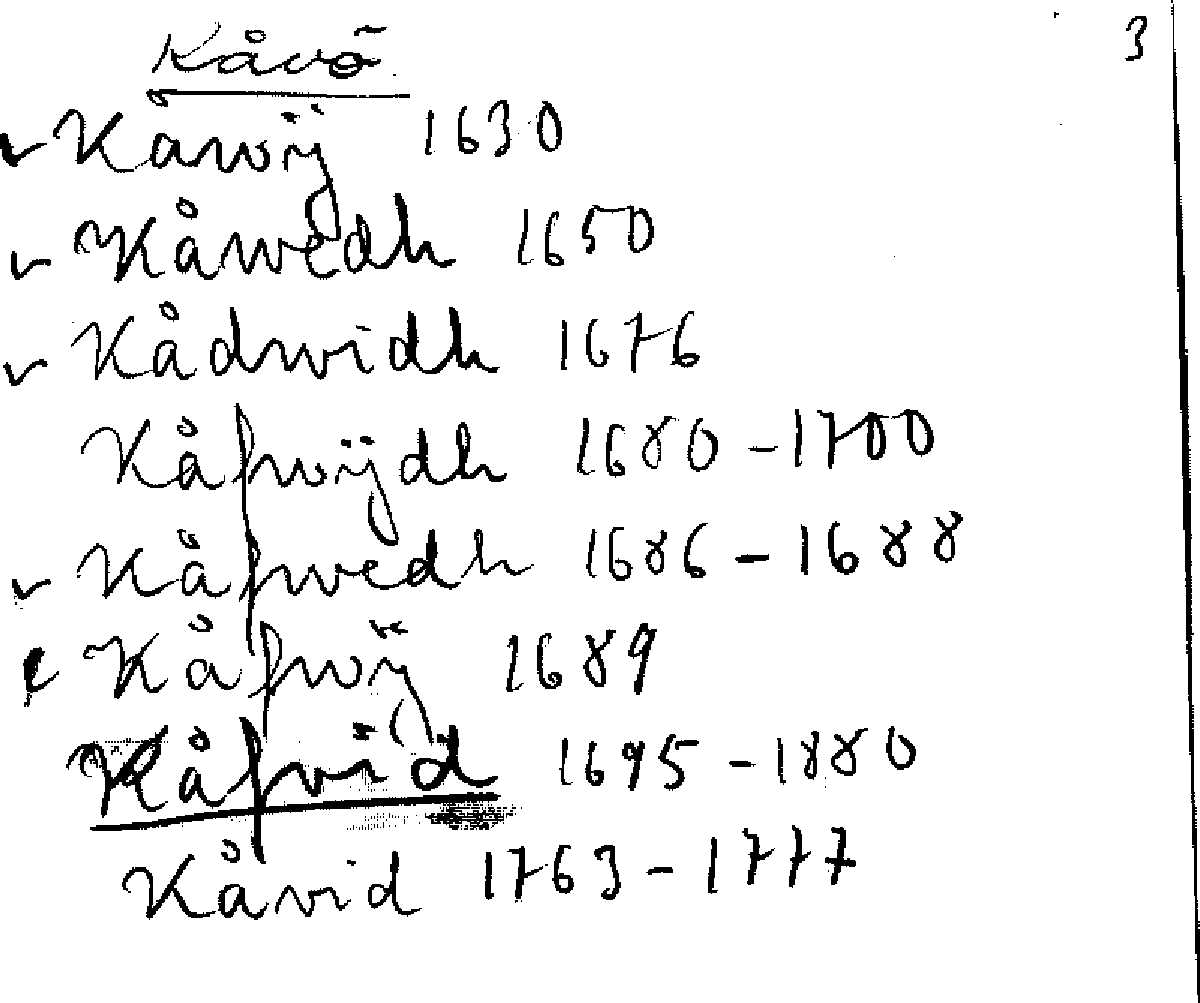 3
Kåvö
✓ Kåwij 1630
✓ Kåwedh 1650
✓ Kådwidh 1676
Kåfwijdh 1680-1700
✓ Kåfwedh 1686-1688
Kåfwij 1689
Kåfvid 1695-1880
Kåvid 1763-1777